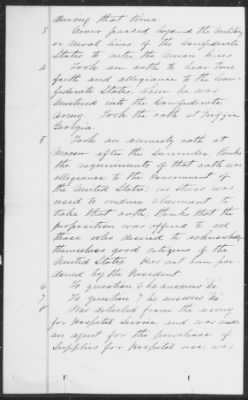 during that time.
3 Never passed beyond the military
or naval lines of the Confederate
States to enter the Union lines
4 Took an oath to bear true
faith and allegiance to the Con-
federate States, when he was
mustered into the Confederate
Army. Took the oath at
Georgia.
5 Took an amnesty oath at
Macon after the surrender. thinks
the requirements of that oath was
allegiance to the Government of
the United States; no stress was
used to induce claimant to
take that oath, thinks that the
proposition was offered to all
those who desired to acknowledge
themselves good citizens of the
United States. Has not been par-
doned by the President.
6 To question 6 he answers "No"
7 To question 7 he answers "No"
8 Was detailed from the army
for Hospital Service and was made
an agent for the purchase of
Supplies for Hospital use, was